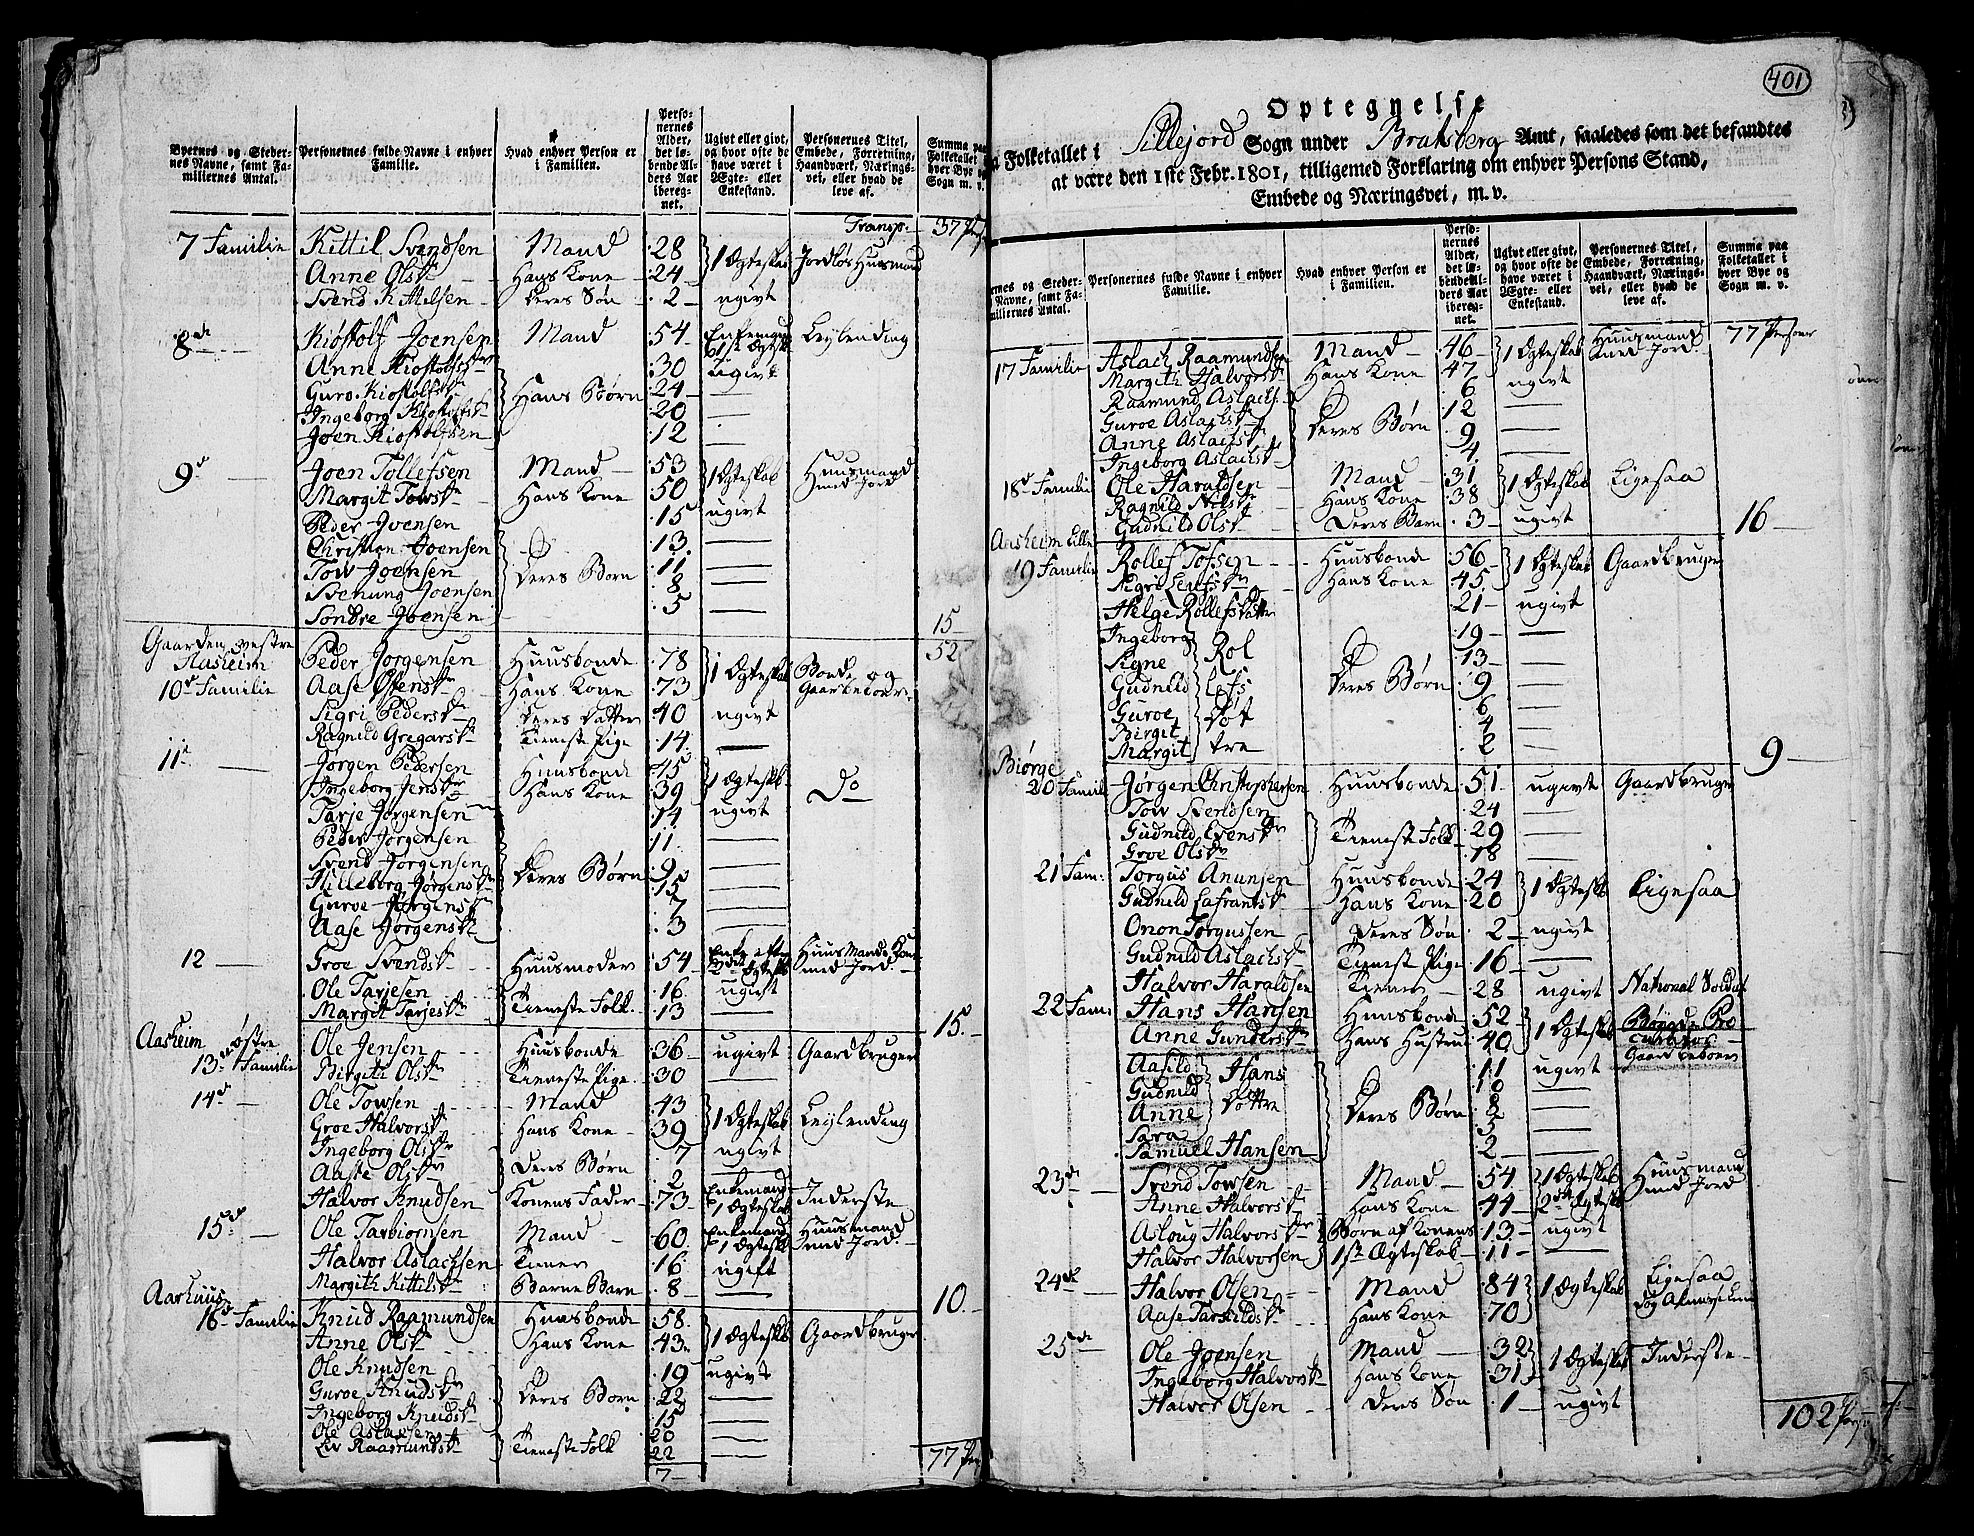 Byernes og Stedernes Navne, samt Familiernes Antal.
Personernes fulde Navne i enhver Familie.
Hvad enhver Person er i Familien.
Personernes Alder, det løbende Alders Aar iberegnet.
Ugivt eller givt, og hvor ofte de have været i Ægte- eller Enkestand.
Personernes Titel, Embede, Forretning, Haandværk, Næringsvei, eller hvad de leve af.
Summa paa Folketallet i hver Bye og Sogn m. v.
Transp. 37
7 Familie Kittil Svendsen Mand 28 1 Ægteskab Jordløs Huusmand
Anne Olsdr Hans Kone 24
Svend Kittilsen Deres Søn 2 ugivt
8de Kiøstolf Joensen Mand 54 Enkemand 1ste Ægtesk. Leylending
Anne Kiostolfsdr 30 ugivt
Guro Kiostolfsdr Hans Børn 24 —
Ingeborg Kiostolfsdr 20 —
Joen Kiostolfsen 12 —
9de Joen Tollefsen Mand 53 1 Ægteskab Huusmand med Jord
Margit Towsdr Hans Kone 50
Peder Joensen 15 ugivt
Christian Joensen 13 —
Tow Joensen Deres Børn 11 —
Svenung Joensen 8 —
Sondre Joensen 5 —
15
Gaarden vestre Aasheim 52
10de Familie Peder Jorgensen Huusbonde 78 1 Ægteskab Bonde og Gaardbeboer
Aase Ostensdr Hans Kone 73
Sigri Pedersdr Deres Datter 40 ugivt
Ragnild Gregarsdr Tieneste Pige 14 —
11te Jorgen Pedersen Huusbonde 45 1 Ægteskb. Do
Ingeborg Jensdr Hans Kone 39
Tarje Jørgensen 14 ugivt
Peder Jørgensen 11 —
Svend Jorgensen Deres Børn 9 —
Hilleborg Jørgensdr 15 —
Guroe Jørgensdr 7 —
Aase Jørgensdr 3 —
12 Groe Svendsdr Huusmoder 54 Enke efter 2de Ægtesk. Huus Mands Kone med Jord
Ole Tarjesen Tieneste Folk 16 ugivt
Margit Tarjesdr 13 —
15
Aasheim østre
13de Familie Ole Jensen Huusbonde 36 ugivt Gaardbruger
Birgith Olsdr Tieneste Pige 30 —
14de Ole Towsen Mand 43 1 Ægteskab Leylending
Groe Halvorsdr Hans Kone 39
Ingeborg Olsdr Deres Børn 7 ugivt
Aaste Olsdr 2 —
Halvor Knudsen Konens Fader 73 Enkemand 1 Ægteskab Inderste
15de Ole Tarbiornsen Mand 60 Enkemand 1 Ægtesk. Huusmand med Jord
Halvor Aslachsen Tiener 16 ugift
Margith Kittilsdr Barne Barn 8 —
10
Aarhuus
16de Familie Knud Raamundsen Huusbonde 58 1 Ægteskb. Gaardbruger
Anne Olsdr Hans Kone 43
Ole Knudsen 19 ugivt
Guroe Knudsdr Deres Børn 22 —
Ingeborg Knudsdr 15 —
Ole Aslachsen Tieneste Folk 20 —
Liv Raamundsdr 22 —
7
77
401
Optegnelse
Folketallet i Sillejord Sogn under Bratsberg Amt, saaledes som det befandtes
at være den 1ste Febr. 1801, tilligemed Forklaring om enhver Persons Stand,
Embede og Næringsvei, m. v.
Personernes fulde Navne i enhver Familie.
Hvad enhver Person er i Familien.
Personernes Alder, det løbende Alders Aar iberegnet.
Ugivt eller givt, og hvor ofte de have været i Ægte- eller Enkestand.
Personernes Titel, Embede, Forretning, Haandværk, Næringsvei, eller hvad de leve af.
Summa paa Folketallet i hver Bye og Sogn m. v.
77 Personer
17 Familie Aslach Raamundsen Mand 46 1 Ægteskab Huusmand med Jord
Margith Halvorsdr Hans Kone 47
Raamund Aslachs. 6 ugivt
Guroe Aslachsdr Deres Børn 12 —
Anne Aslachsdr 9 —
Ingeborg Aslachsdr 4 —
18de Familie Ole Haraldsen Mand 31 1 Ægteskab Ligesaa
Ragnild Nilsdr Hans Kone 38
Gudnild Olsdr Deres Barn 3 ugivt
16
Aasheim Lille
19 Familie Rollef Tofsen Huusbonde 56 1 Ægteskab Gaardbruger
Sigri Leifsdr Hans Kone 45
Helge Rollefsdatter 21 ugivt
Ingeborg Rol 19 —
Signe 13 —
Gudnild lefs Deres Børn 9 —
Guroe Døt 6 —
Birgit 4 —
Margit tre 2 —
9
Biørge
20 Famil. Jørgen Christophersen Huusbonde 51 ugivt Gaardbruger
Tow Svendsen 24 —
Gudnild Evensdr Tieneste Folk 29 —
Groe Olsdr 18 —
21 Fam: Torgus Anunsen Huusbonde 24 1 Ægteskb. Ligesaa
Gudnild Lafrantsdr Hans Kone 20
Onon Torgussen Deres Søn 2 ugivt
Gudnild Aslachsdr Tieneste Pige 16 —
Halvor Haraldsen Tiener 28 ugivt National Soldat
22 Fam: Hans Hansen Huusbonde 52 1 Ægteskab
Anne Gundersdr Hans Hustru 40 Gaardbeboer
Aasild Hans 11 ugivt
Gudnild 10 —
Anne Døttre Deres Børn 8 —
Sara 5 —
Samuel Hansen 2 —
23de Svend Towsen Mand 54 1 Ægteskab Huusmand med Jord
Anne Halvorsdr Hans Kone 44 2de Ægtesk.
Asloug Halvorsdr Børn af Konens 13 ugivt
Halvor Halvorsen 1ste Ægteskab 11 —
24de Halvor Olsen Mand 84 1 Ægteskab Ligesaa
Aase Tarkildsdr Hans Kone 70
25de Ole Joensen Mand 32 1 Ægteskab Inderste
Ingeborg Halvorsdr Hans Kone 31
Halvor Olsen Deres Søn 1 ugivt
102